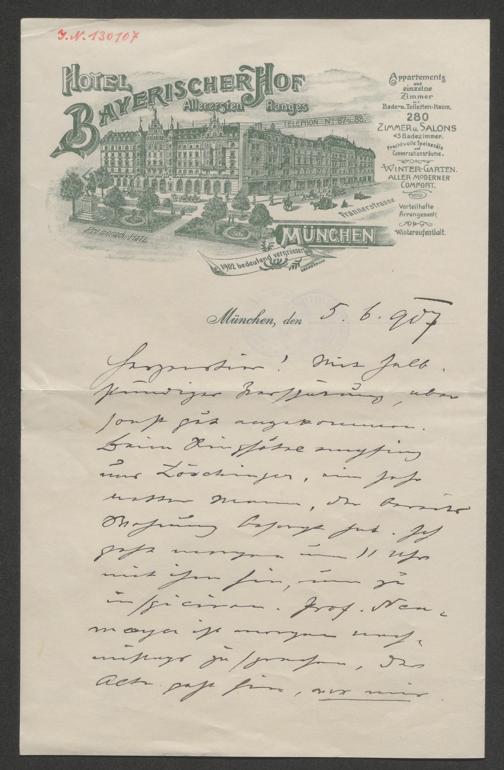 J.N. 130107
HOTEL
BAYERISCHER HOF
Allerersten Ranges
TELEPHON Nº 87 u. 88.
Appartements
und
einzelne
Zimmer
Bade- u. Toiletten-Raum.
280
ZIMMER u. SALONS
Badezimmer.
Prachtvolle Speisesäle
und
Conversationsräume.
WINTER-GARTEN.
ALLER MODERNER
COMFORT.
Vorteilhafte
Arrangements
Winteraufenthalt.
Prannerstrasse
Promenade-Platz
MÜNCHEN
1902 bedeutend vergrössert
München, den 5. 6. 907
! Mit halb-
stündiger Verspätung, aber
sonst gut angekommen.
Beim empfing
uns Löschinger, ein sehr
netter Mann, der bereits
Wohnung besorgt hat. Ich
gehe morgen um 11 Uhr
mit ihm hin, um zu
inspiciren. Prof. Neu-
mayer ist morgen nach-
mittags zu sprechen, der
Akt geht hin,